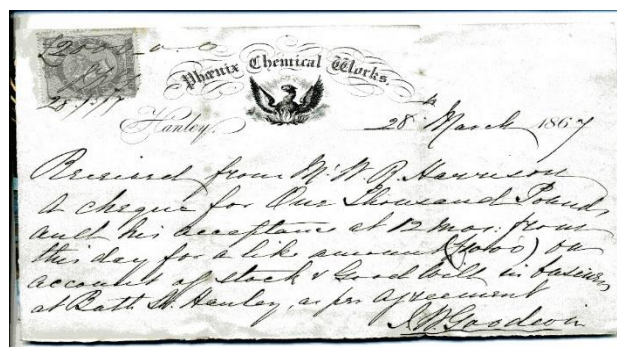 £2000-0-0
Phœnix Chemical Works.
Hanley.
28th March 1867
Received from Mr W. R. Harrison
a cheque for One Thousand Pounds
and his acceptance at 12 mos: from
this day for a like amount (£1000) on
account of stock & Goodwill in business
at Bath St. Hanley, as per agreement
J. W. Goodwin